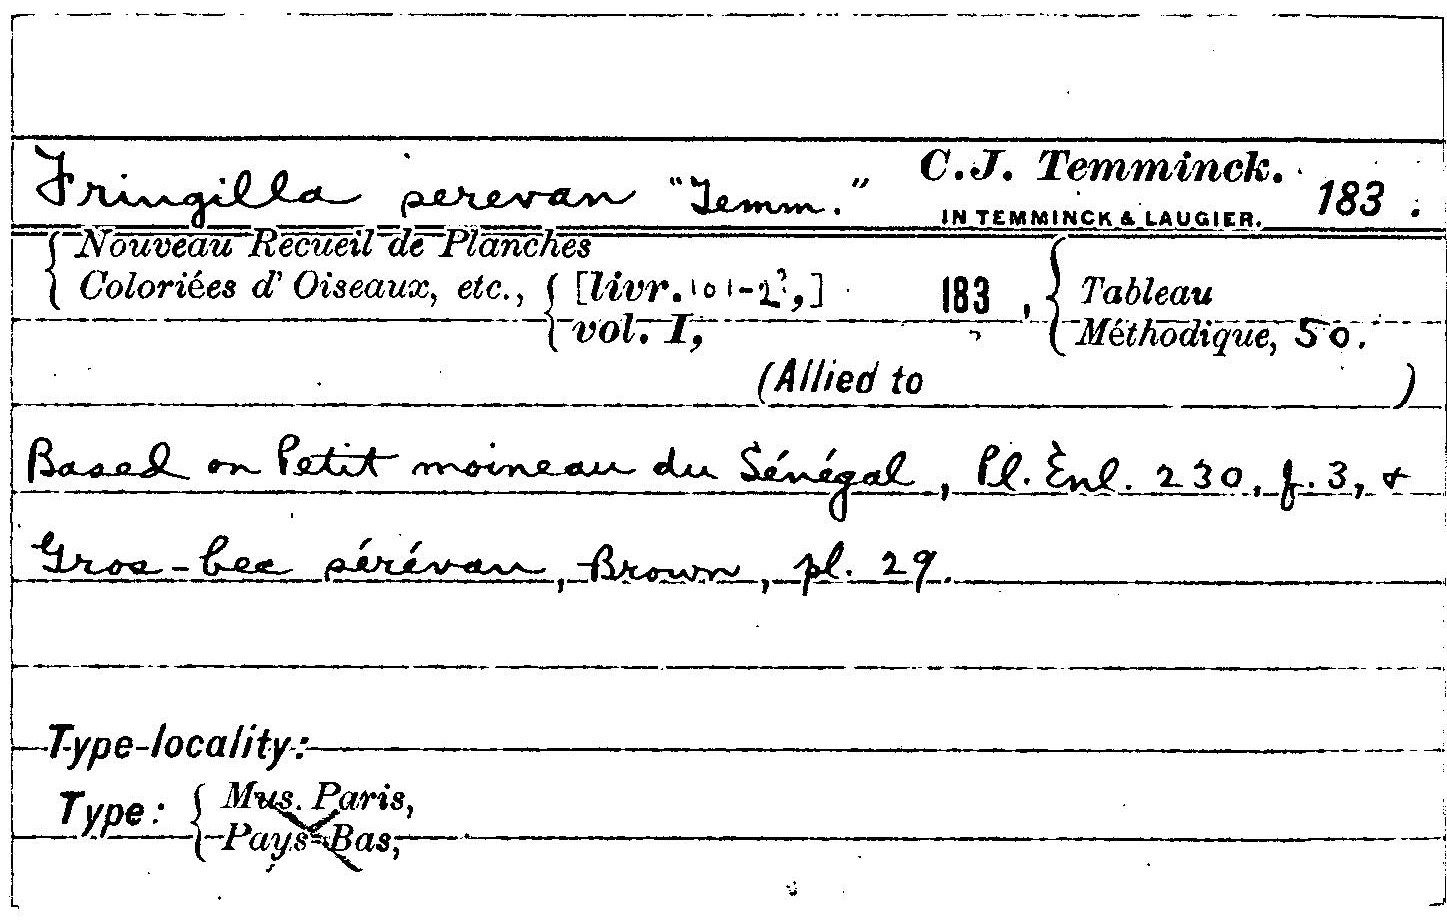 Fringilla serevan "Temm." C.J. Temminck. 183 .
IN TEMMINCK & LAUGIER.
Nouveau Recueil de Planches
Coloriées d' Oiseaux, etc., [livr. 101-2?,] 183 , Tableau
vol. I, ? Méthodique, 50.
(Allied to )
Based on Petit moineau du Sénégal, Pl. Enl. 230, f. 3, &
Gros-bec sérévan, Brown, pl. 29.
Type-locality:
Type: Mus. Paris,
Pays-Bas,